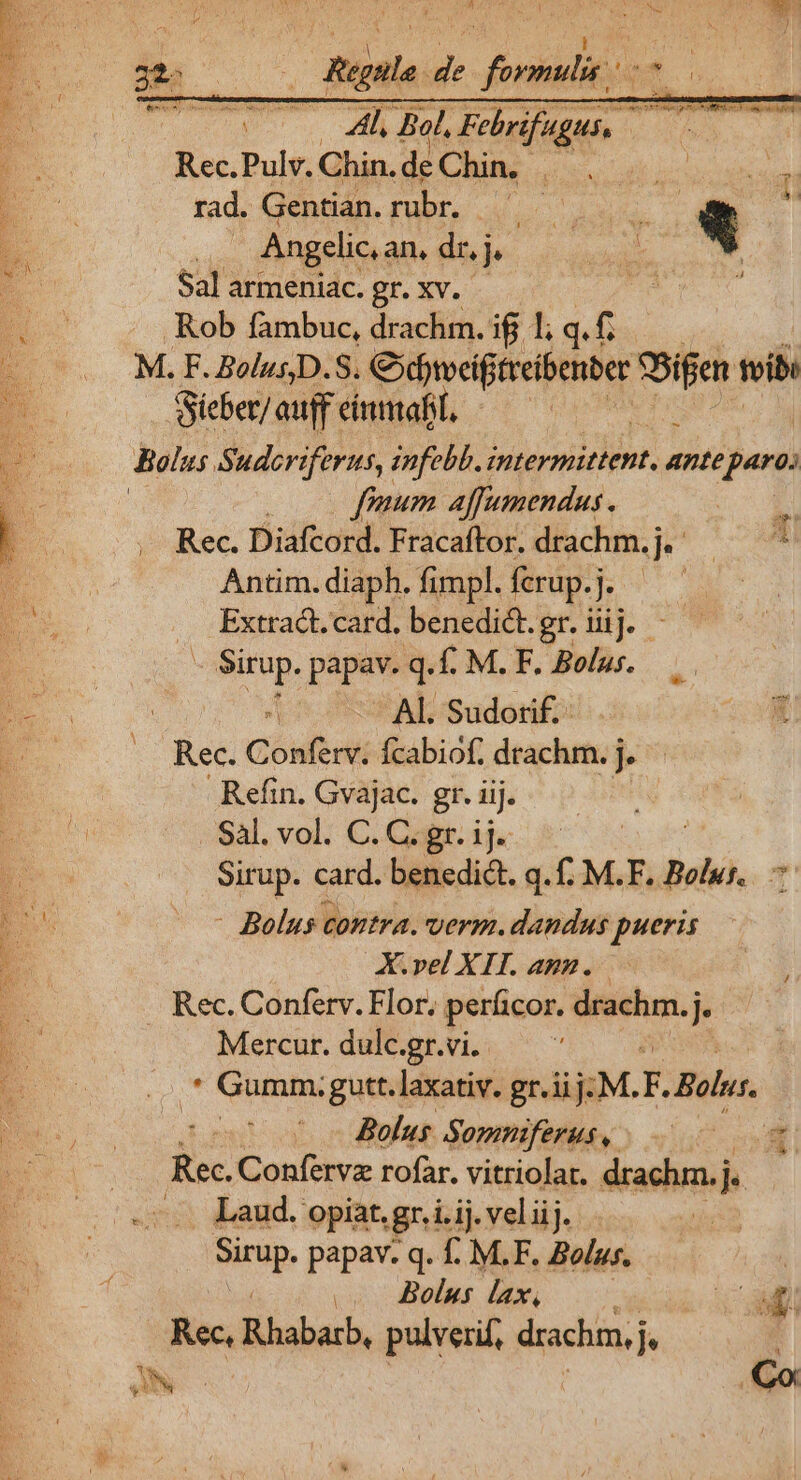 32 Regulæ de formulis
Al, Bol, Febrifugus,
Rec. Pulv. Chin. de Chin.
rad. Gentian. rubr.
Angelic, an, dr, j,
Sal armeniac. gr. xv.
Rob ſambuc, drachm. iß l; q. ſ;
M. F. Bolus, D. S. Schweißtreibender Bißen wid
Fieber/ auff einmahl.
Bolus Sudoriferus, in febb. intermittent. ante paro
ſmum aſſumendus.
Rec. Diaſcord. Fracaſtor. drachm. j.
Antim. diaph. ſimpl. ſcrup. j.
Extract. card. benedict. gr. iiij.
Sirup. papav. q. ſ. M. F. Bolus.
Al. Sudorif.
Rec. Conſerv. ſcabioſ. drachm. j.
Reſin. Gvajac. gr. iij.
Sal. vol. C. C. gr. ij.
Sirup. card. benedict. q. ſ. M. F. Bolus.
Bolus contra. verm. dandus pueris
X. vel XII. ann.
Rec. Conſerv. Flor. perſicor. drachm. j.
Mercur. dulc. gr. vi.
Gumm. gutt. laxativ. gr. iij. M. F. Bolus.
Bolus Somniferus,
Rec. Conſervæ roſar. vitriolat. drachm. j.
Laud. opiat. gr. i. ij. vel iij.
Sirup. papav. q. ſ. M. F. Bolus.
Bolus lax,
Rec, Rhabarb, pulveriſ, drachm, j,
Co